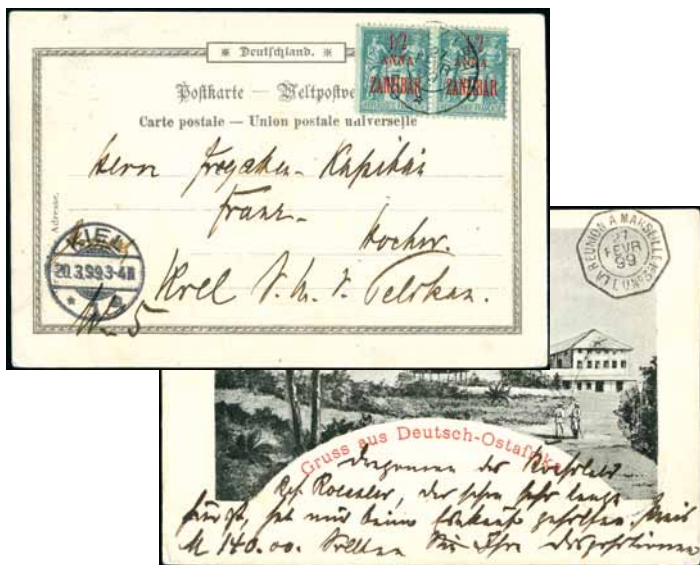 * Deutschland. *
Postkarte — Weltpostve
Carte postale — Union postale universelle
Adresse.
1/2
ANNA
ZANZIBAR
1/2
ANNA
ZANZIBAR
Herrn Fregatten-Kapitän
Franz
Hochw.
Kiel S. M. S. Pelikan.
KIEL
20.3.99.3-4N
LA REUNION A MARSEILLE
FEVR
99
Gruss aus Deutsch-Ostafrika
Dragoman des
Roessler, der schon sehr lange
hier ist, hat mir beim Einkauf geholfen. Preis
M 140.00. Sollten Sie Ihre